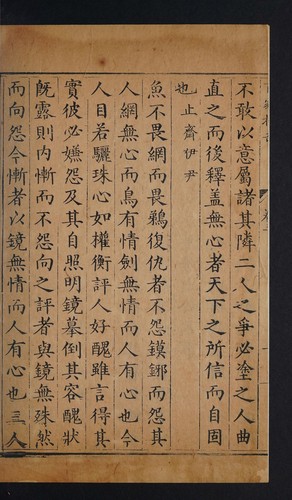 不敢以意屬諸其隣二人之爭必塗之人曲
直之而後釋盖無心者天下之所信而自固
也止齋伊尹
魚不畏網而畏鵜復仇者不怨鏌鎁而怨其
人網無心而鳥有情劍無情而人有心也今
人目若驪珠心如權衡評人好醜雖言得其
實彼必嫌怨及其自照明鏡摹倒其容醜狀
既露則内慚而不怨向之評者與鏡無殊然
而向怨今慚者以鏡無情而人有心也三人